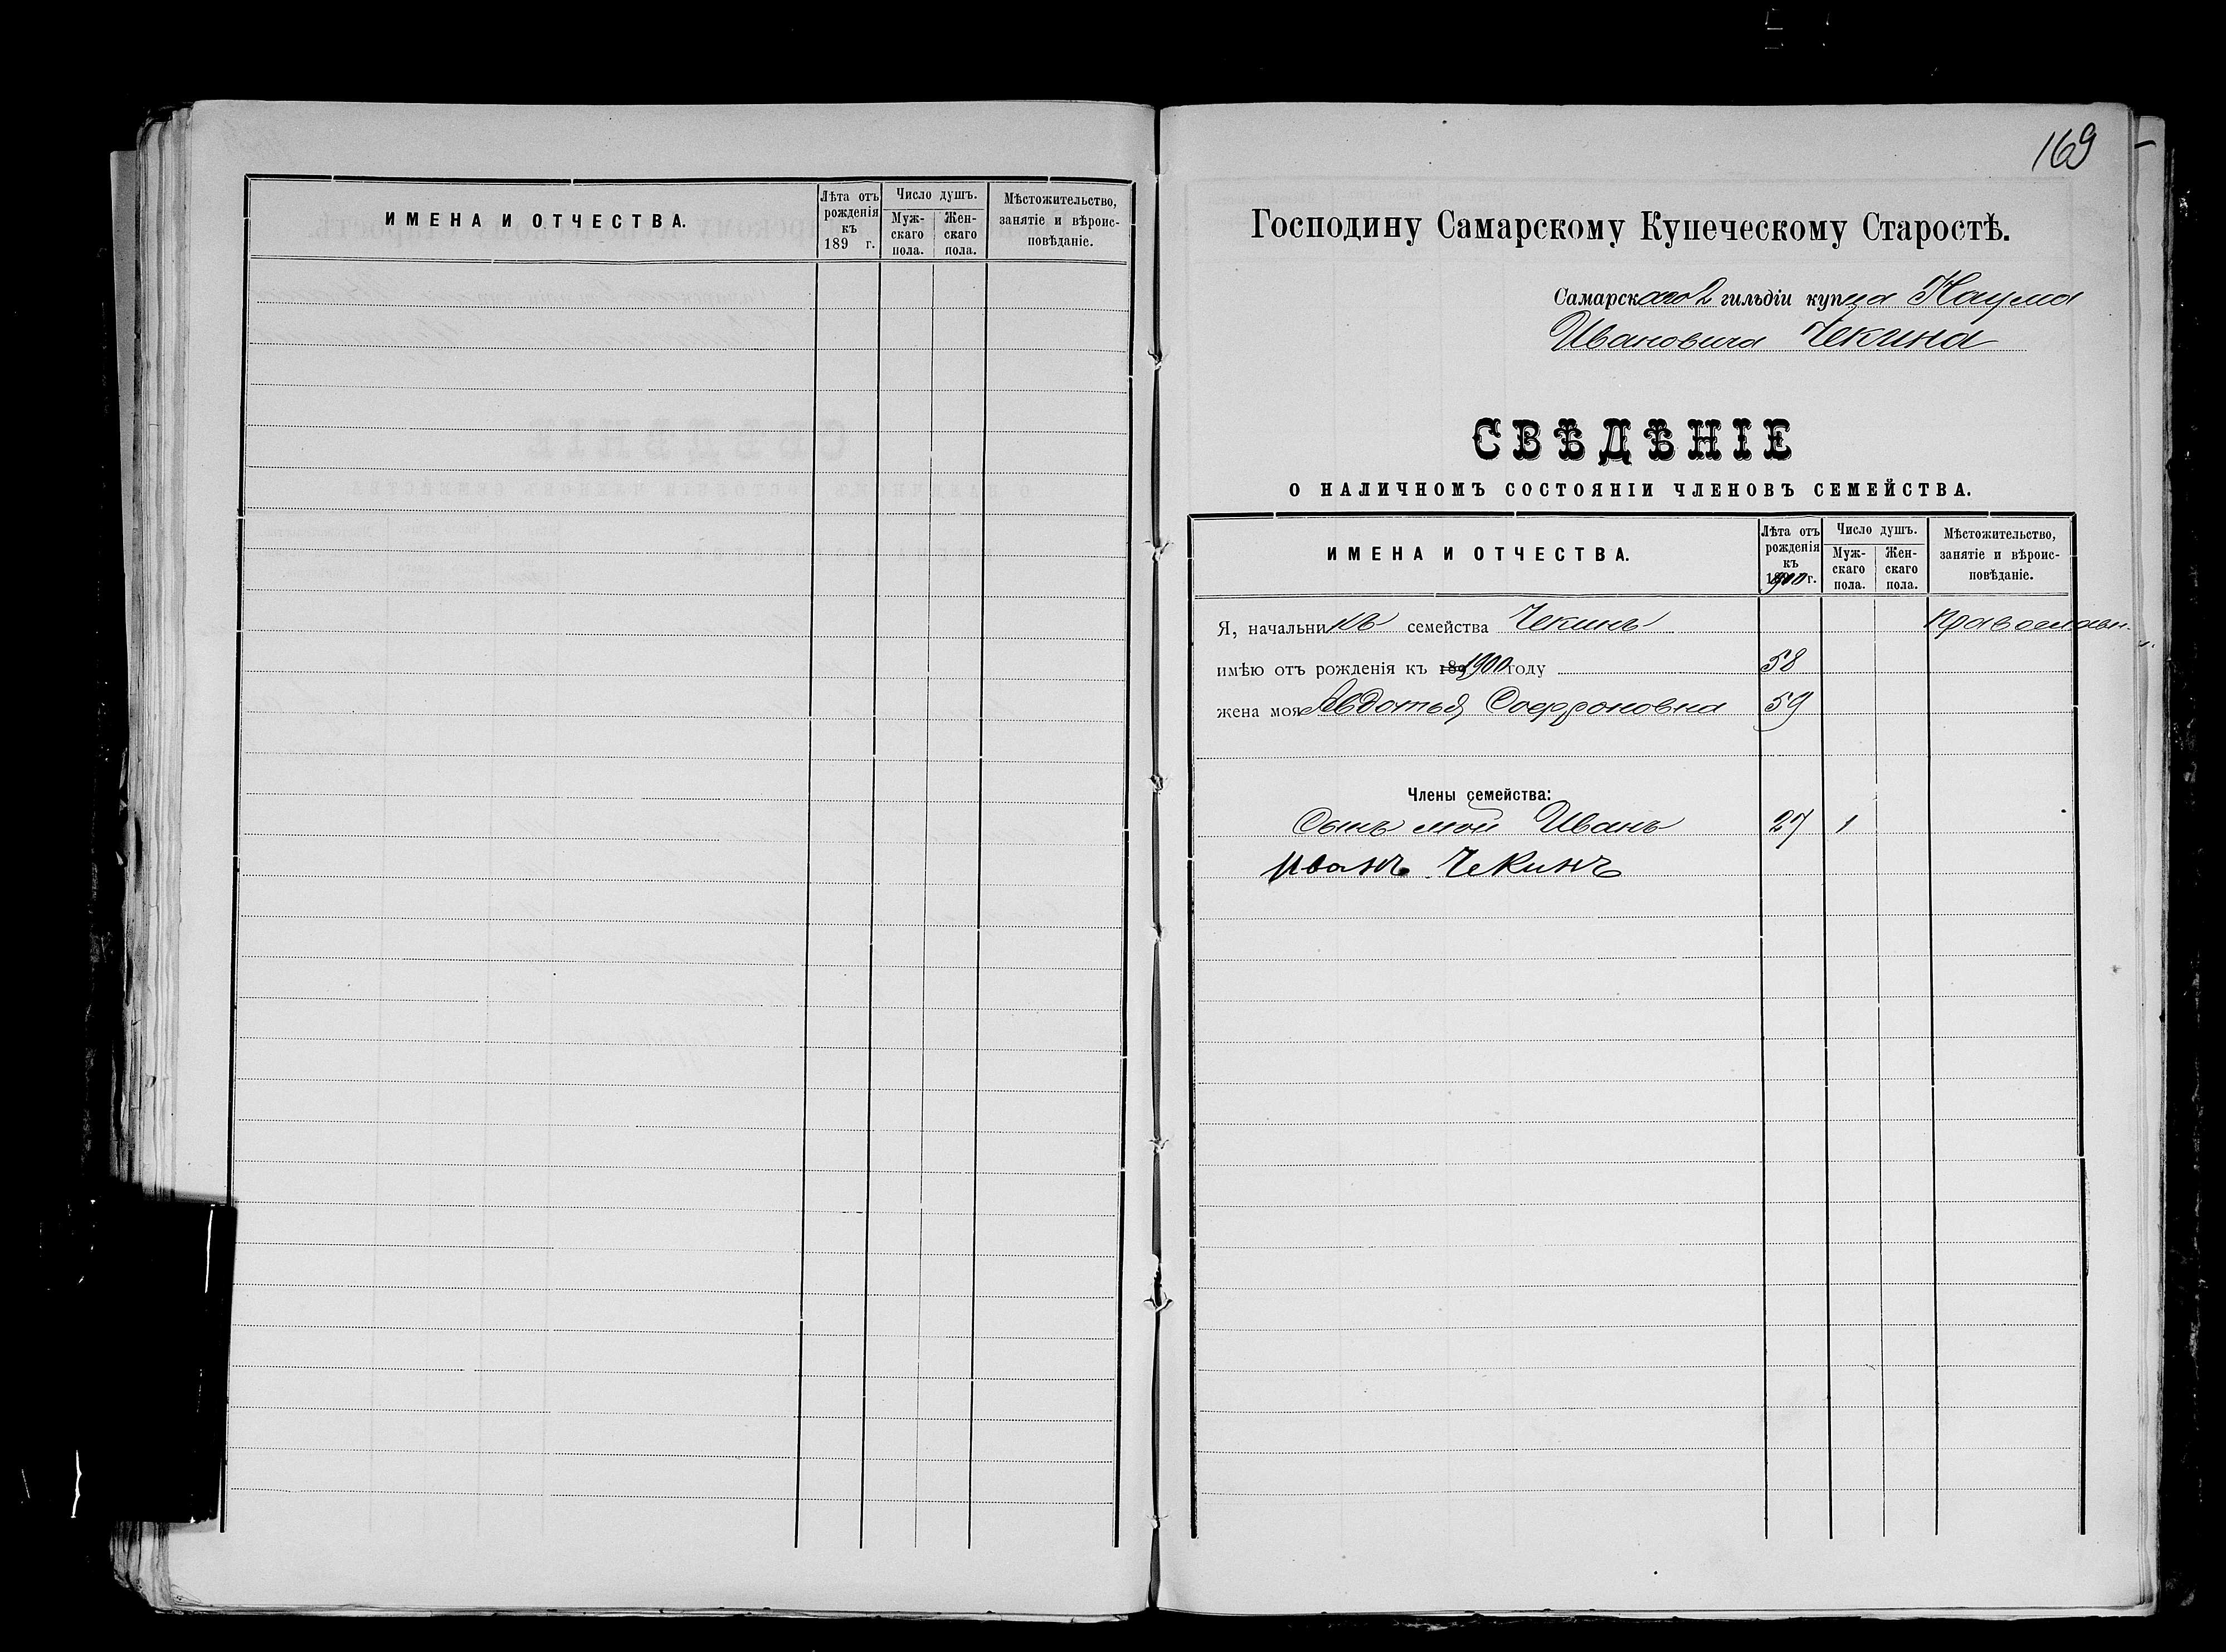 ИМЕНА И ОТЧЕСТВА.
Лѣта отъ рожденія къ 189 г.
Число душъ.
Мужскаго пола.
Женскаго пола.
Мѣстожительство, занятіе и вѣроисповѣданіе.
169
Господину Самарскому Купеческому Старостѣ.
Самарскаго 2 гильдіи купца Наума
Ивановича Чекина
СВѢДѢНІЕ
О НАЛИЧНОМЪ СОСТОЯНІИ ЧЛЕНОВЪ СЕМЕЙСТВА.
ИМЕНА И ОТЧЕСТВА.
Лѣта отъ рожденія къ 1900 г.
Число душъ.
Мужскаго пола.
Женскаго пола.
Мѣстожительство, занятіе и вѣроисповѣданіе.
Я, начальникъ семейства Чекинъ Православн.
имѣю отъ рожденія къ 189 1900 году 58
жена моя Авдотья Софроновна 59
Члены семейства:
Сынъ мой Иванъ 27 1
Иванъ Чекинъ